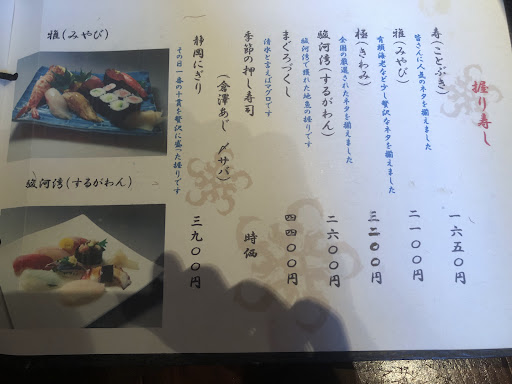 握り寿し
寿(ことぶき) 一六五〇円
皆さんに人気のネタを揃えました
雅(みやび) 二一〇〇円
有頭海老など少し贅沢なネタを揃えました
極(きわみ) 三二〇〇円
全国の厳選されたネタを揃えました
駿河湾(するがわん) 二六〇〇円
駿河湾で獲れた地魚の握りです
まぐろづくし 四四〇〇円
清水と言えばマグロです
季節の押し寿司 時価
(倉澤あじ 〆サバ)
静岡にぎり 三九〇〇円
その日一番の本賞を贅沢に盛った握りです
雅(みやび)
駿河湾(するがわん)